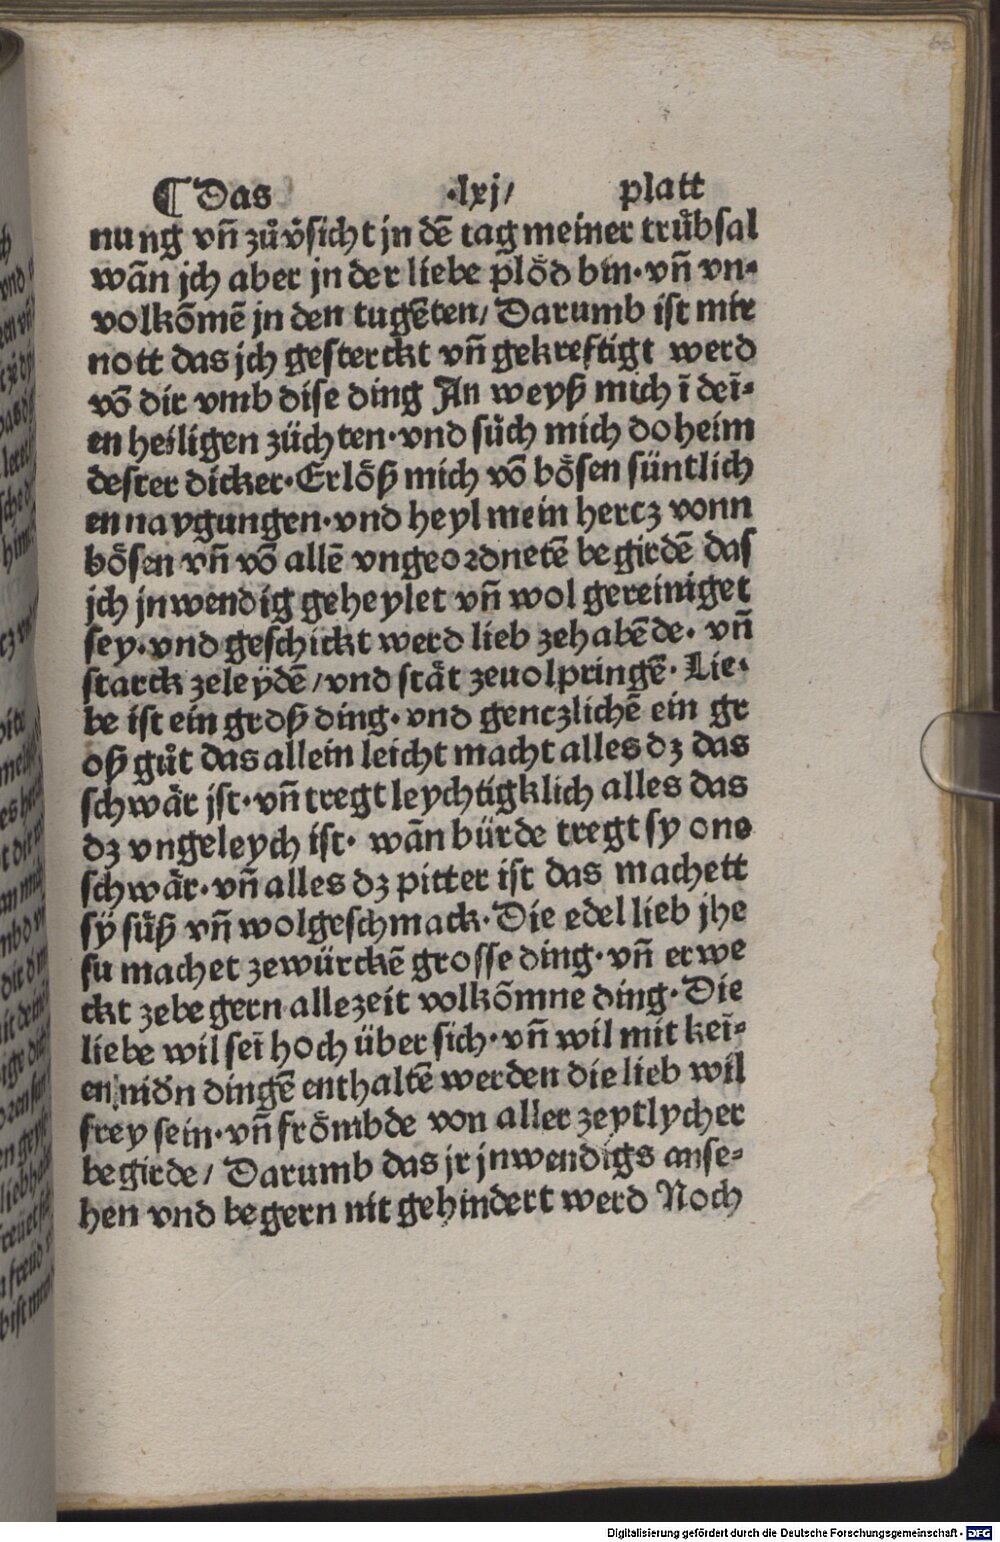 ¶ Das ·lxj/ platt
nung vñ zův̊sicht jn dẽ tag meiner trůbsal
wãn jch aber jn der liebe plöd bin· vñ vn-
volkõmẽ jn den tugẽten/ Darumb ist mir
nott das jch gesterckt vñ gekreftigt werd
võ dir vmb dise ding An weyß mich ĩ deĩ-
en heiligen züchten· vnd sůch mich doheim
dester dicker· Erlöß mich võ bösen süntlich
en naygungen· vnd heyl mein hercz vonn
bösen vñ võ allẽ vngeordnetẽ begirdẽ das
jch jnwendig geheylet vñ wol gereiniget
sey· vnd geschickt werd lieb zehabẽde· vñ
starck zeleÿdẽ/ vnd stät zeuolpringẽ· Lie-
be ist ein groß ding· vnd genczlichẽ ein gr
oß gůt das allein leicht macht alles dz das
schwär jst· vñ tregt leychtigklich alles das
dz vngeleych ist· wãn bürde tregt sy one
schwär· vñ alles dz pitter ist das machett
sÿ süß vñ wolgeschmack· Die edel lieb jhe
su machet zewürckẽ grosse ding· vñ erwe
ckt zebegern allezeit volkõmne ding· Die
liebe wil seĩ hoch über sich· vñ wil mit keĩ-
en nidn̊ dingẽ enthaltẽ werden die lieb wil
frey sein· vñ frömbde von aller zeytlycher
begirde/ Darumb das jr jnwendigs anse-
hen vnd begern nit gehindert werd Noch
Digitalisierung gefördert durch die Deutsche Forschungsgemeinschaft - DFG